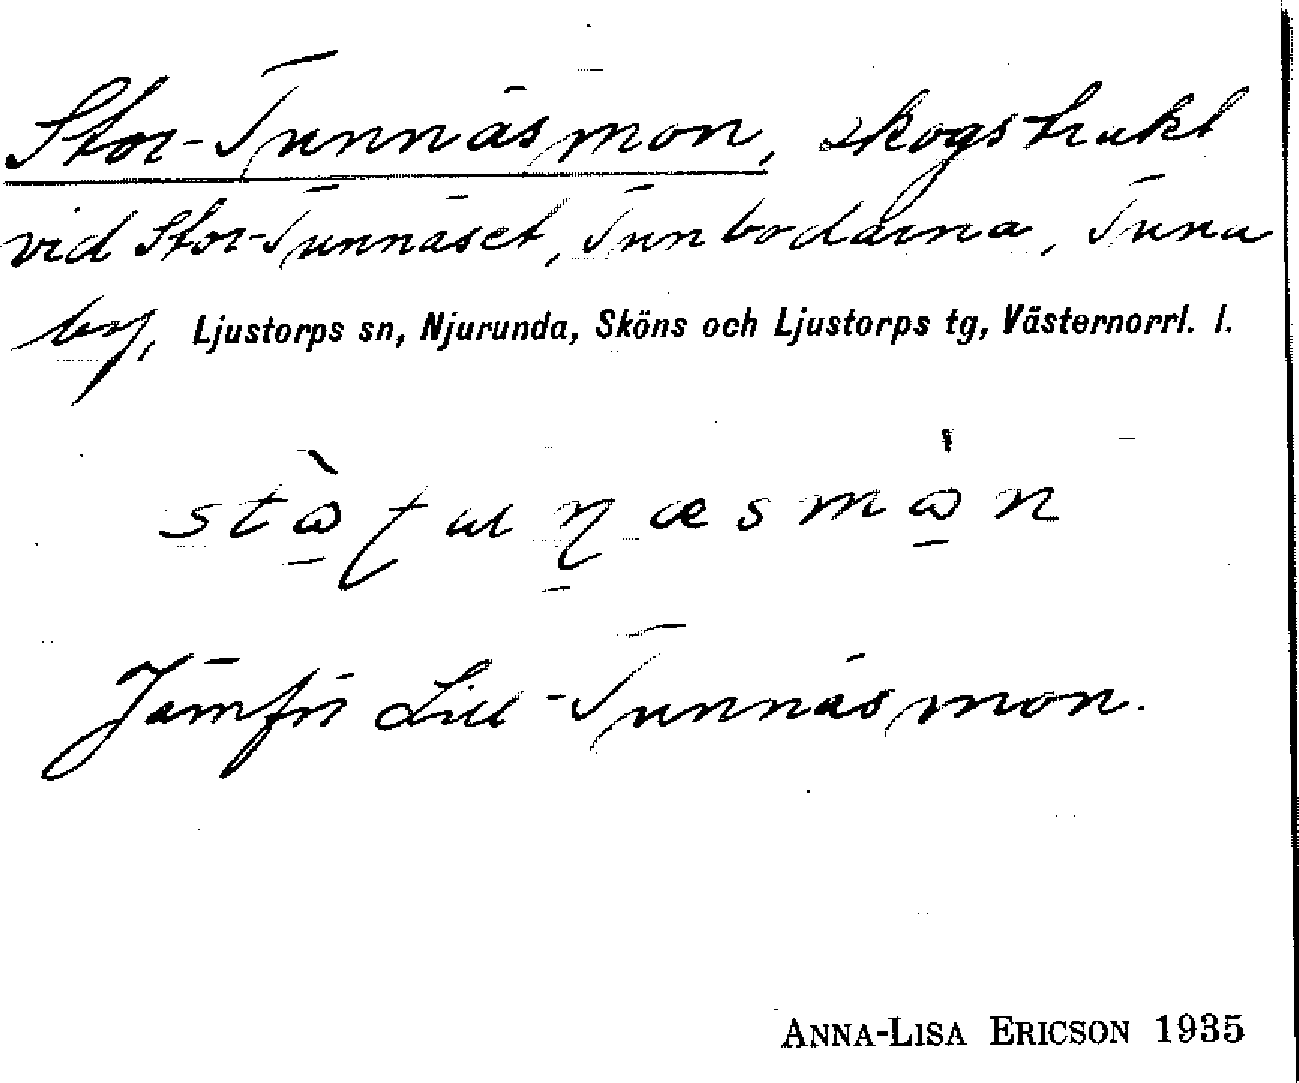 Stor-Tunnäsmon, skogstrakt
vid Stor-Tunnäset, Tunbodarna, Tuna
by, Ljustorps sn, Njurunda, Sköns och Ljustorps tg, Västernorrl. l.
Jämför Lill-Tunnäsmon.
ANNA-LISA ERICSON 1935